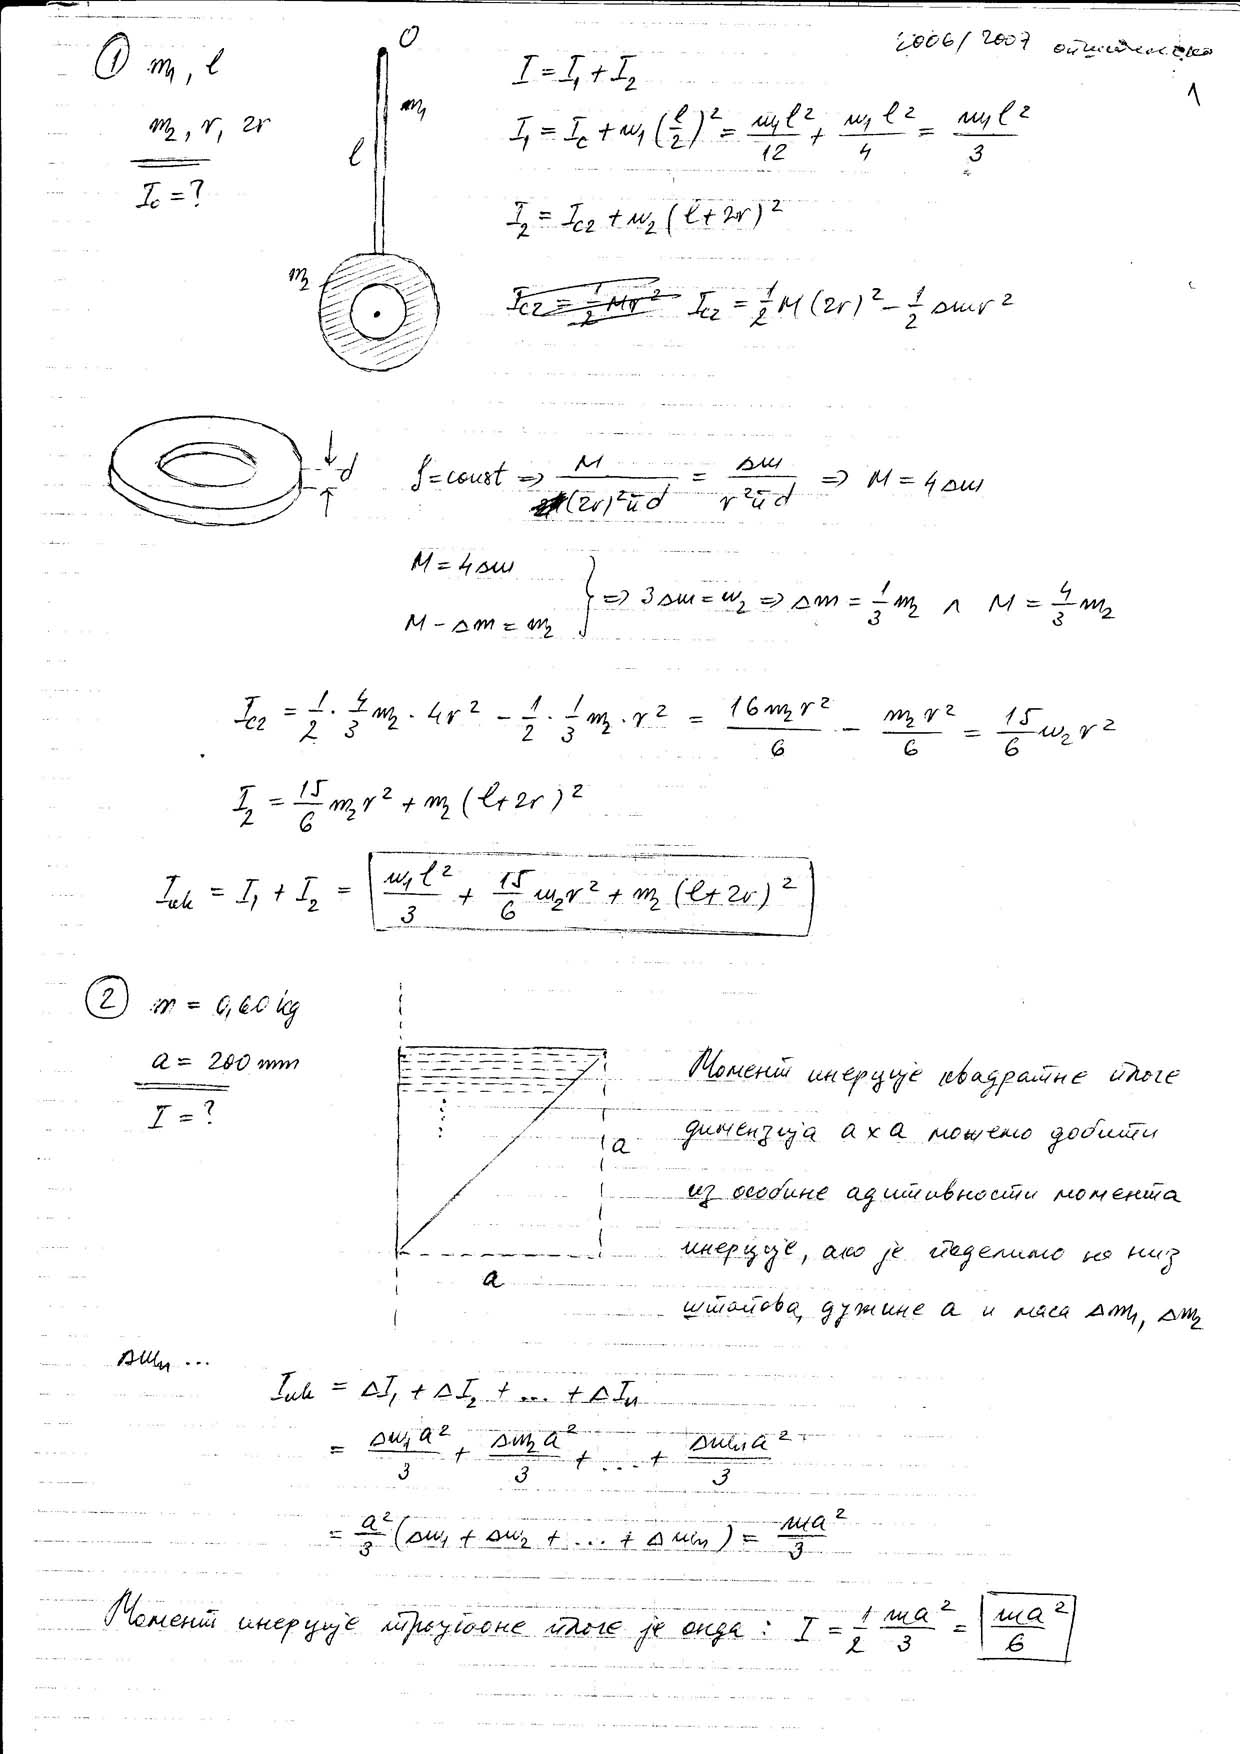 2006/2007 општинско
1
① m₁, l
m₂, r, 2r
I₀ = ?
O
m₁
l
m₂
I = I₁ + I₂
I₁ = I_c + m₁(l/2)² = m₁l²/12 + m₁l²/4 = m₁l²/3
I₂ = I_c2 + m₂(l+2r)²
I_c2 = 1/2 Mr² I_c2 = 1/2 M(2r)² - 1/2 Δmr²
d
ρ = const => M/((2r)²πd) = Δm/(r²πd) => M = 4Δm
M = 4Δm
M - Δm = m₂
} => 3Δm = m₂ => Δm = 1/3 m₂ ∧ M = 4/3 m₂
I_c2 = 1/2 · 4/3 m₂ · 4r² - 1/2 · 1/3 m₂ · r² = 16m₂r²/6 - m₂r²/6 = 15/6 m₂r²
I₂ = 15/6 m₂r² + m₂(l+2r)²
I_uk = I₁ + I₂ = m₁l²/3 + 15/6 m₂r² + m₂(l+2r)²
② m = 0,60 kg
a = 200 mm
I = ?
a
a
Момент инерције квадратне плоче
димензија a x a можемо добити
из особине адитивности момента
инерције, ако је поделимо на низ
штапова, дужине a и маса Δm₁, Δm₂
Δmₙ ...
I_uk = ΔI₁ + ΔI₂ + ... + ΔIₙ
= Δm₁a²/3 + Δm₂a²/3 + ... + Δmₙa²/3
= a²/3 (Δm₁ + Δm₂ + ... + Δmₙ) = ma²/3
Момент инерције троугаоне плоче је онда: I = 1/2 ma²/3 = ma²/6